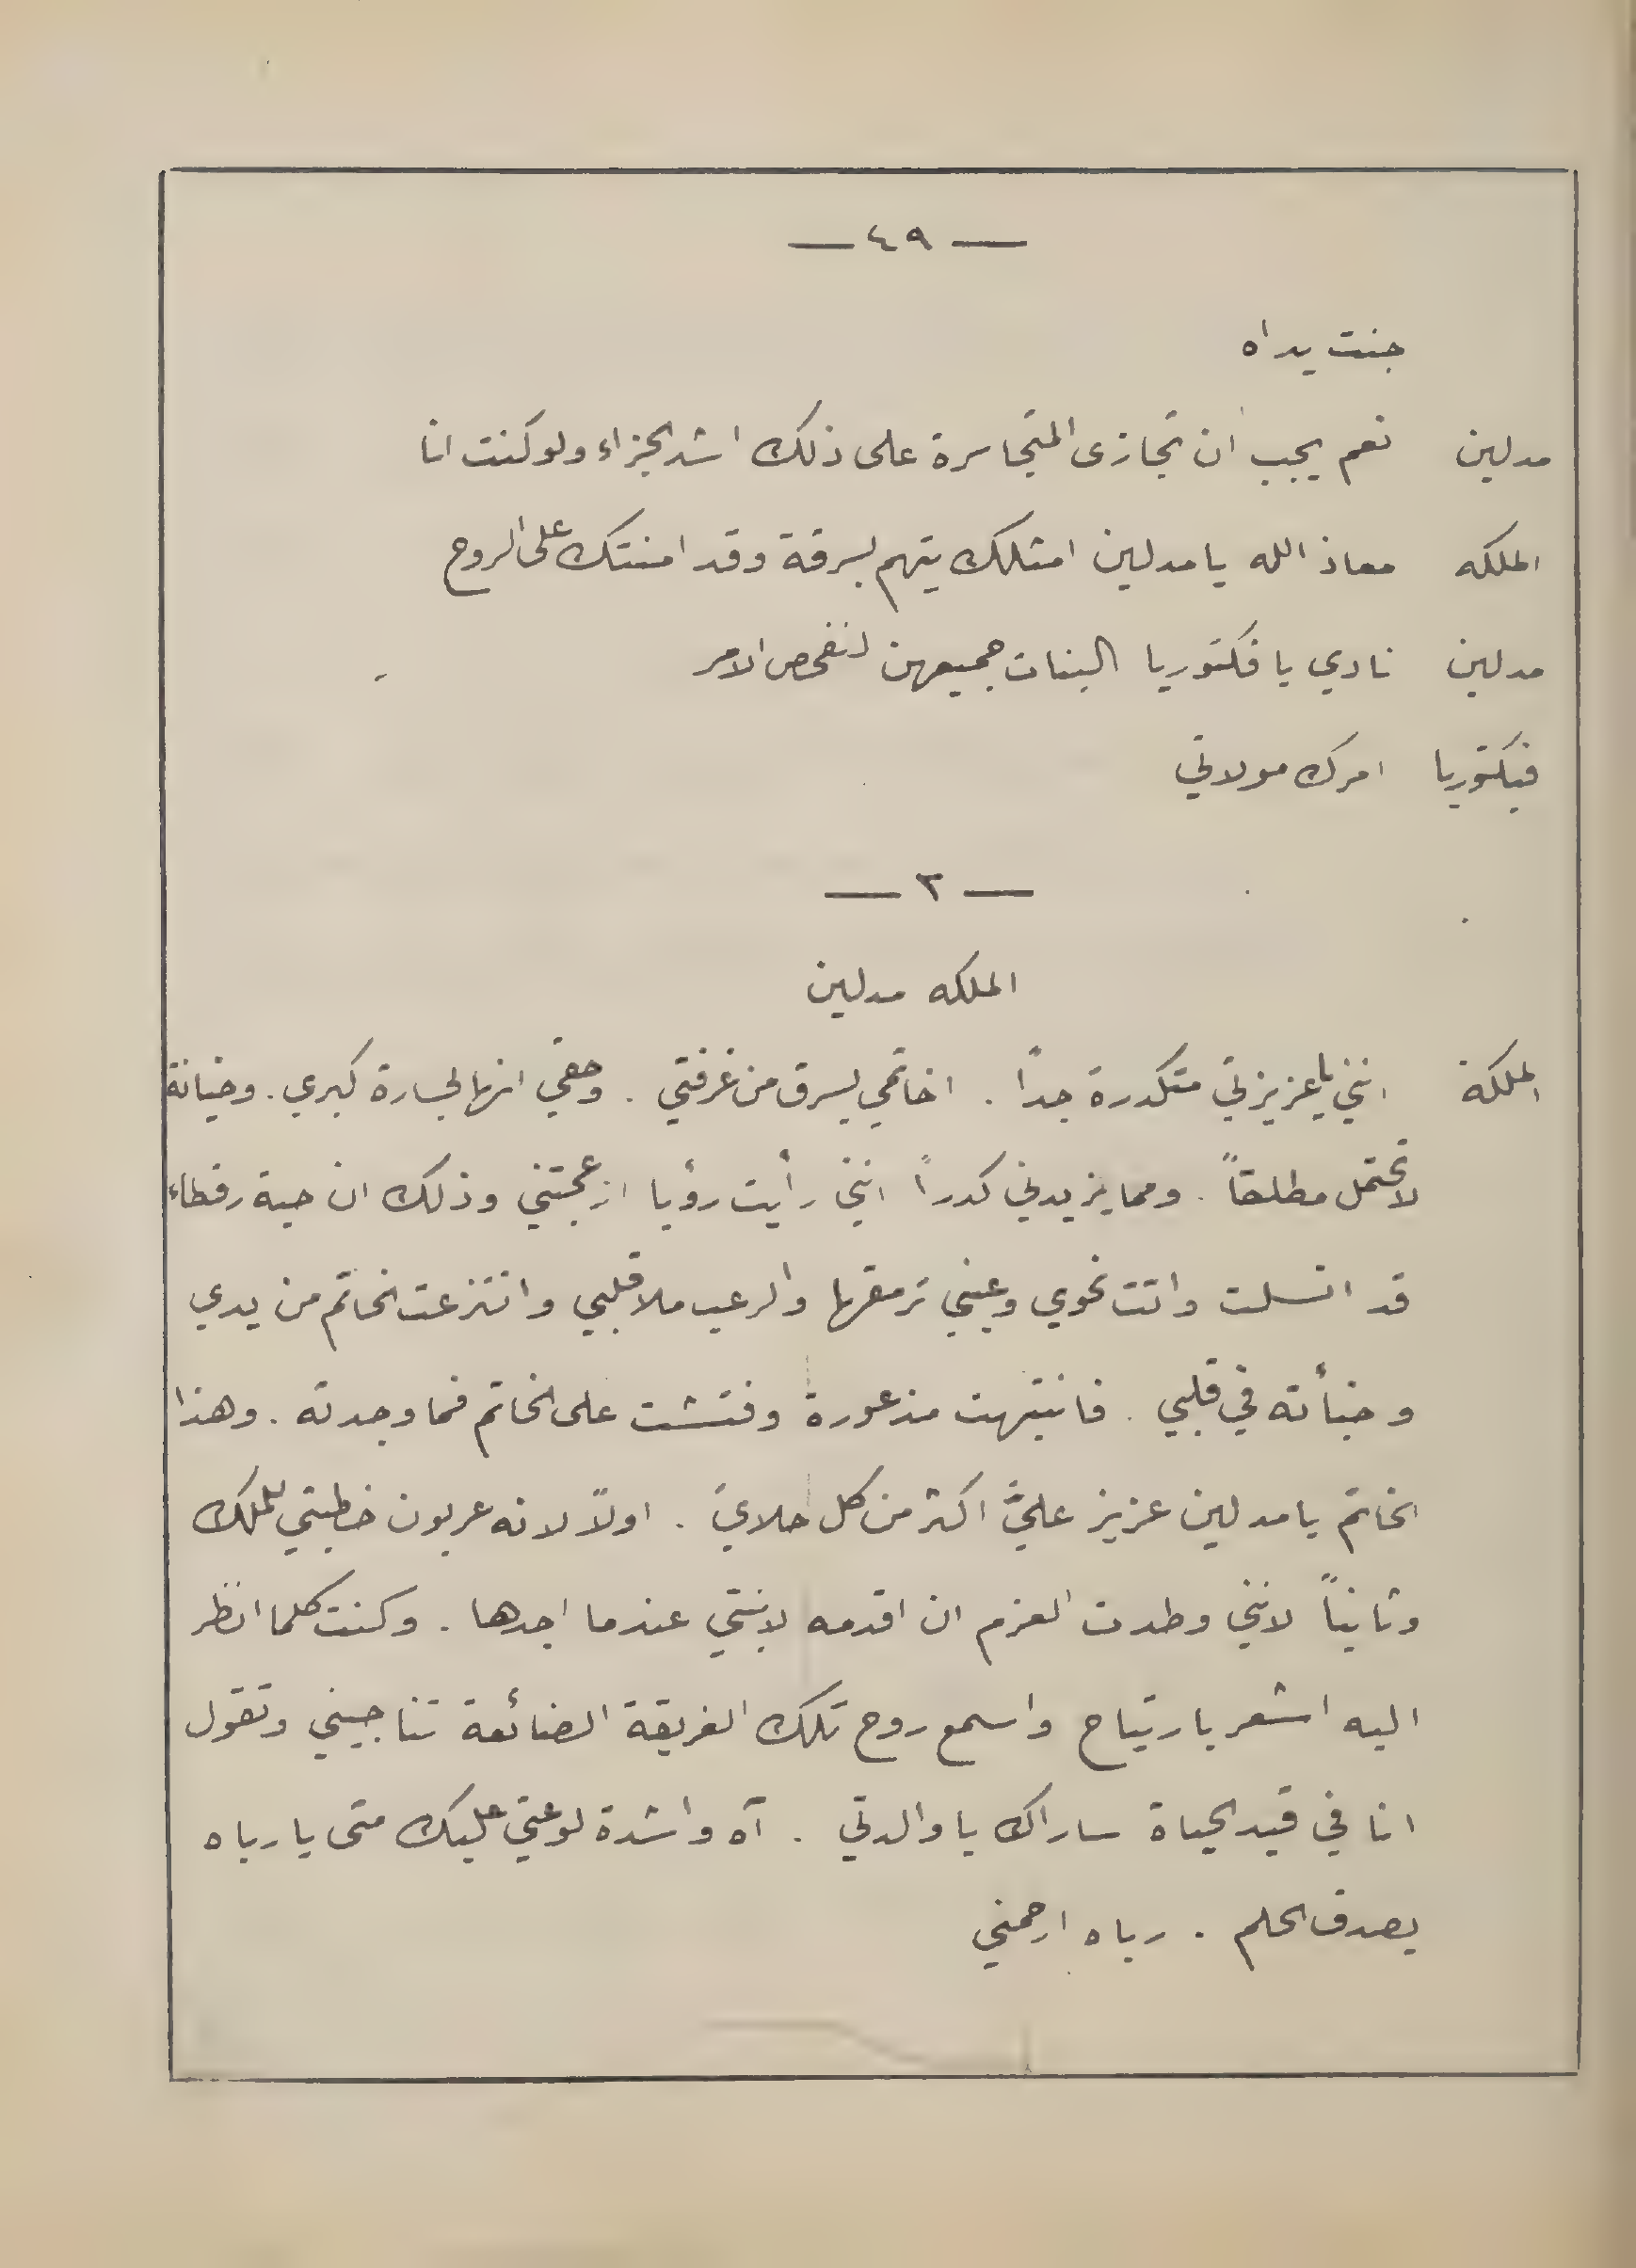 — ٤٩ —
جنت يداه
مدلين نعم يجب ان تجازى المتجاسرة على ذلك اشد الجزاء ولو كنت انا
الملكه معاذ الله يا مدلين امثلك يتهم بسرقة وقد امنتك على الروح
مدلين نادي يا فكتوريا البنات جميعهن لنفحص الامر
فيكتوريا امرك مولاتي
— ٢ —
الملكه مدلين
الملكة انني يا عزيزتي متكدرة جداً . اخاتمي يسرق من غرفتي . وحقي انها لجسارة كبرى . وخيانة
لا تحتمل مطلقاً . ومما يزيدني كدراً انني رأيت رؤيا ازعجتني وذلك ان حية رقطاء
قد انسلت واتت نحوي وعيني ترمقها والرعب ملا قلبي وانتزعت الخاتم من يدي
وخبأته في قلبي . فانتبهت مذعورة وفتشت على الخاتم فما وجدته . وهذا
الخاتم يا مدلين عزيز عليَّ اكثر من كل حلايَ . اولاً لانه عربون خطبتي للملك
وثانياً لانني وطدت العزم ان اقدمه لابنتي عندما اجدها . وكنت كلما انظر
اليه اشعر بارتياح واسمع روح تلك الغريقة الضائعة تناجيني وتقول
انا في قيد الحياة ساراك يا والدتي . آه واشدة لوعتي عليك متى يا رباه
يصدق الحلم . رباه ارحمني